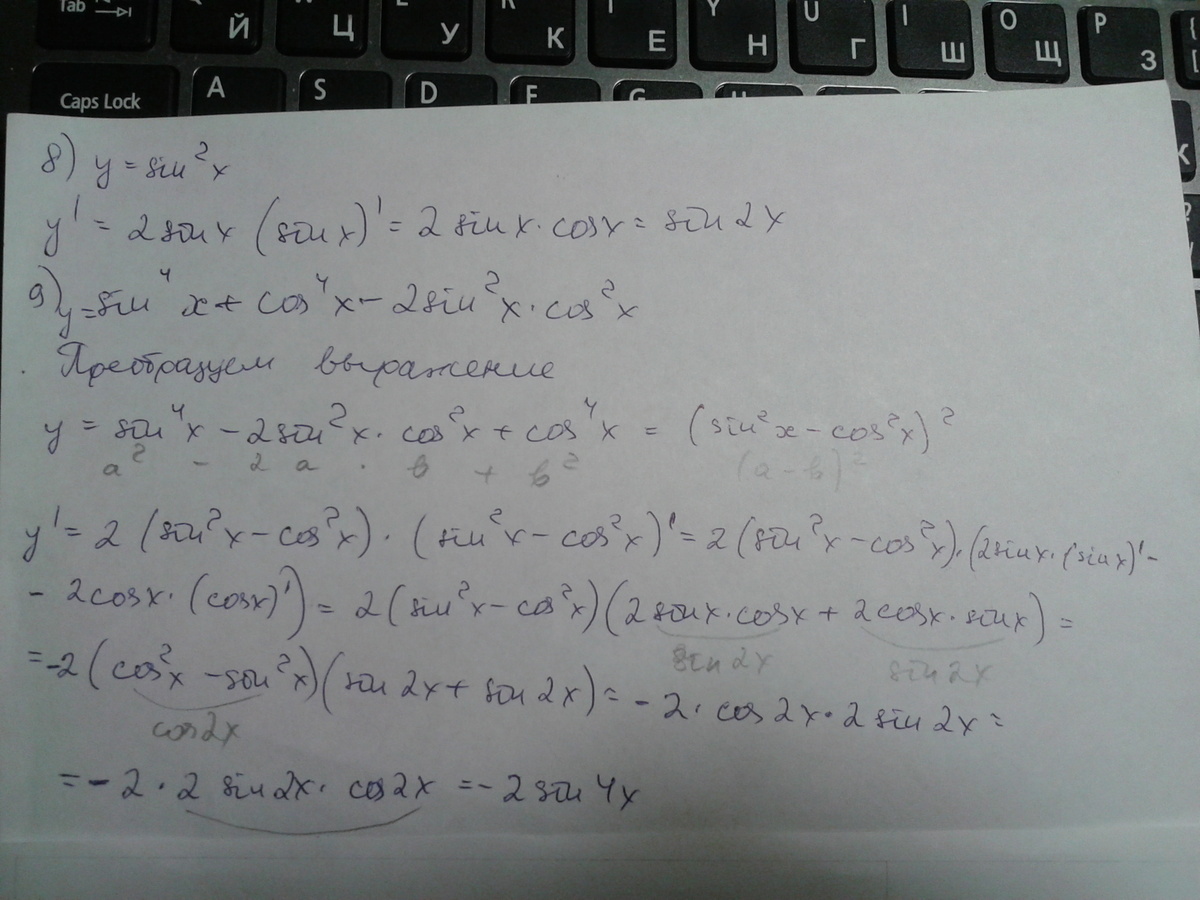 Tab Й Ц У К Е Y Н U Г I Ш O Щ P З
Caps Lock A S D F G
8) y = sin²x
y' = 2 sin x (sin x)' = 2 sin x · cos x = sin 2x
9) y = sin⁴x + cos⁴x - 2 sin²x · cos²x
Преобразуем выражение
y = sin⁴x - 2 sin²x · cos²x + cos⁴x = (sin²x - cos²x)²
a² - 2 a · b + b² (a - b)²
y' = 2 (sin²x - cos²x) · (sin²x - cos²x)' = 2 (sin²x - cos²x) · (2 sin x · (sin x)' -
- 2 cos x · (cos x)') = 2 (sin²x - cos²x) (2 sin x · cos x + 2 cos x · sin x) =
sin 2x sin 2x
= -2 (cos²x - sin²x) (sin 2x + sin 2x) = - 2 · cos 2x · 2 sin 2x =
cos 2x
= - 2 · 2 sin 2x · cos 2x = - 2 sin 4x